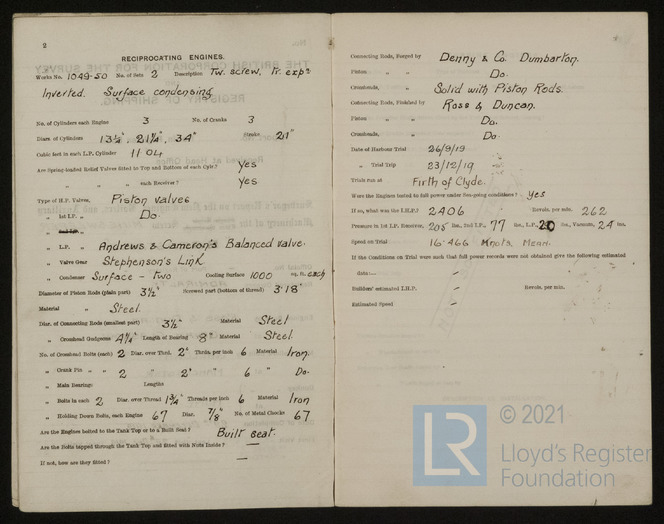 2
RECIPROCATING ENGINES.
Works No. 1049-50 No. of Sets 2 Description Tw. screw, Tr. expn
Inverted. Surface condensing
No. of Cylinders each Engine 3 No. of Cranks 3
Diars. of Cylinders 13½", 21¼", 34" Stroke 21"
Cubic feet in each L.P. Cylinder 11.04
Are Spring-loaded Relief Valves fitted to Top and Bottom of each Cylr.? Yes
" " " each Receiver? Yes
Type of H.P. Valves, Piston valves
" 1st I.P. " Do
"
" L.P. " Andrews & Cameron's Balanced valve.
" Valve Gear Stephenson's Link
" Condenser Surface - two Cooling Surface 1000 sq. ft. each
Diameter of Piston Rods (plain part) 3½" Screwed part (bottom of thread) 3.18"
Material Steel.
Diar. of Connecting Rods (smallest part) 3½" Material Steel
" Crosshead Gudgeons 4¼" Length of Bearing 8" Material Steel.
No. of Crosshead Bolts (each) 2 Diar. over Thrd. 2" Thrds. per inch 6 Material Iron
" Crank Pin " " 2 " 2" " 6 " Do.
" Main Bearings Lengths
" Bolts in each 2 Diar. over Thread 1¾" Threads per inch 6 Material Iron
" Holding Down Bolts, each Engine 67 Diar. 7/8" No. of Metal Chocks 67
Are the Engines bolted to the Tank Top or to a Built Seat? Built seat.
Are the Bolts tapped through the Tank Top and fitted with Nuts Inside? —
If not, how are they fitted? —
Connecting Rods, Forged by Denny & Co. Dumbarton.
Piston " " Do.
Crossheads, " Solid with Piston Rods.
Connecting Rods, Finished by Ross & Duncan.
Piston " " Do.
Crossheads, " Do.
Date of Harbour Trial 26/9/19
" Trial Trip 23/12/19
Trials run at Firth of Clyde.
Were the Engines tested to full power under Sea-going conditions? Yes
If so, what was the I.H.P.? 2406 Revols. per min. 262
Pressure in 1st I.P. Receiver, 205 lbs., 2nd I.P., 77 lbs., L.P., 20 lbs., Vacuum, 24 ins.
Speed on Trial 16.466 Knots, Mean.
If the Conditions on Trial were such that full power records were not obtain give the following estimated
data:—
Builders' estimated I.H.P. Revols. per min.
Estimated Speed
LR © 2021
Lloyd's Register
Foundation